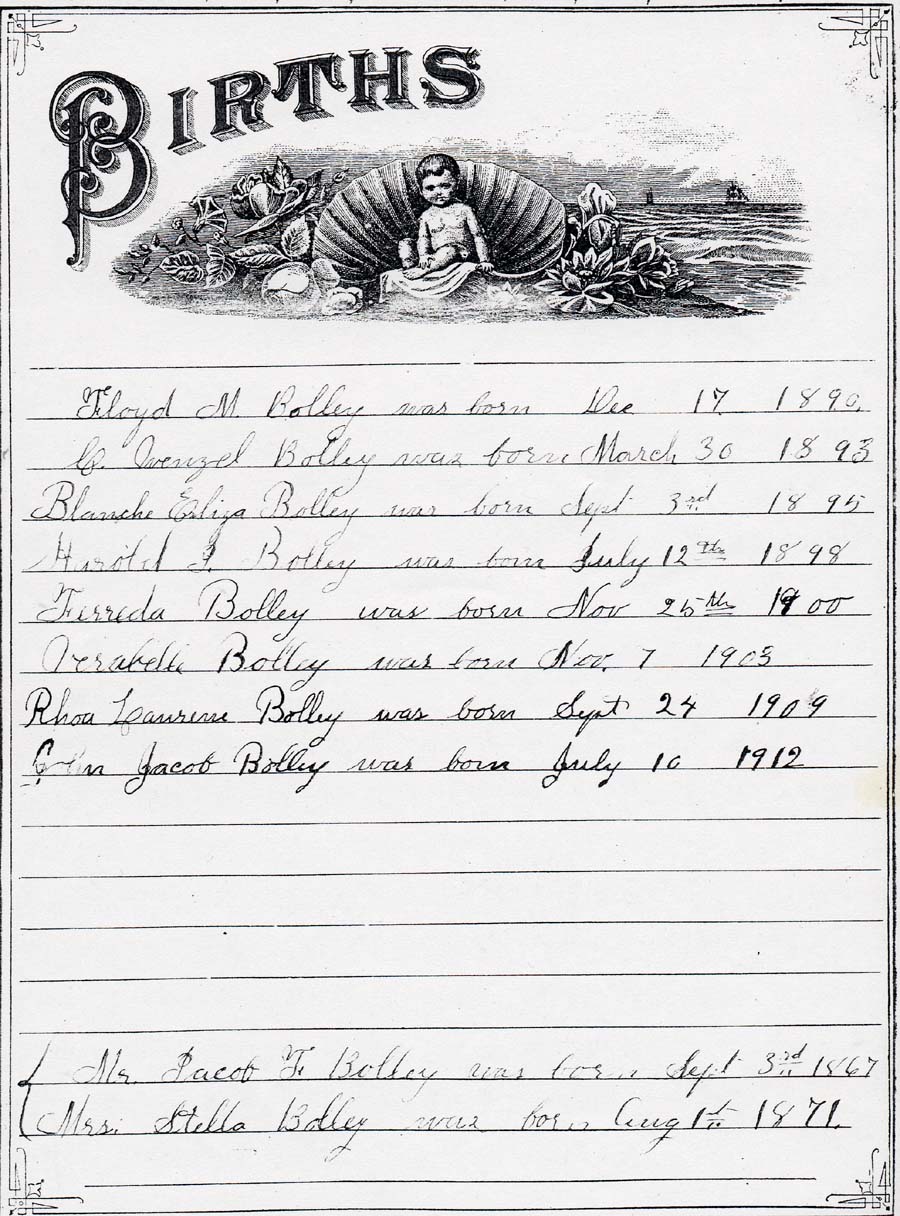 BIRTHS
Floyd M. Bolley was born Dec 17 1890.
C. Wenzel Bolley was born March 30 1893
Blanche Eliza Bolley was born Sept 3rd 1895
Harold I. Bolley was born July 12th 1898
Ferreda Bolley was born Nov 25th 1900
Verabelle Bolley was born Nov. 7 1903
Rhoa Laurene Bolley was born Sept 24 1909
Jacob Bolley was born July 10 1912
Mr. Jacob F Bolley was born Sept 3rd 1867
Mrs. Stella Bolley was born Aug 1st 1871.